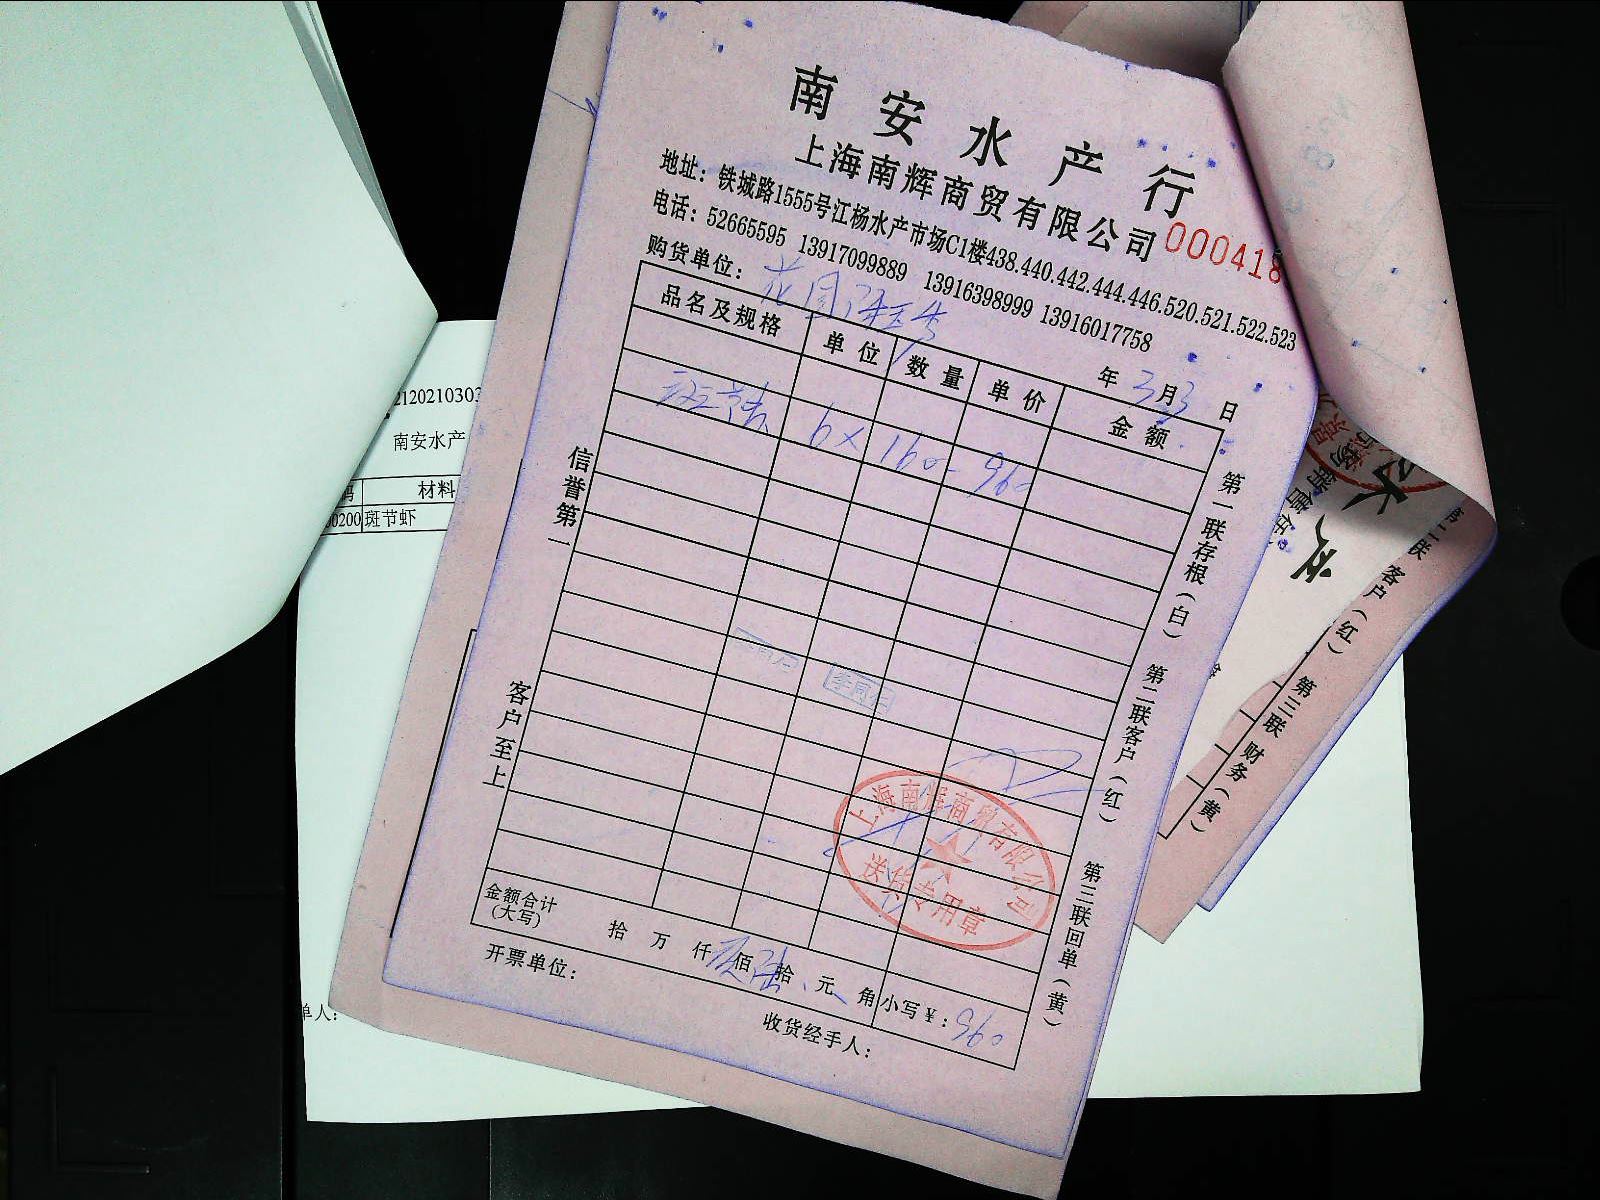 南安水产行
上海南辉商贸有限公司 000418
地址：铁城路1555号江杨水产市场C1楼438.440.442.444.446.520.521.522.523
电话：52665595 13917099889 13916398999 13916017758
购货单位：花园
年 3月3日
品名及规格 单位 数量 单价 金额
斑节 6×160-960
信誉第一
客户至上
第一联存根（白） 第二联客户（红） 第三联回单（黄）
李同
上海南辉商贸有限公司
送货专用章
金额合计
（大写）
拾 万 仟 玖佰 陆拾 元 角 小写￥：960
开票单位：
收货经手人：
2120210303
南安水产
码 材料
00200 斑节虾
单人：
第二联 客户（红） 第三联 财务（黄）
销售在